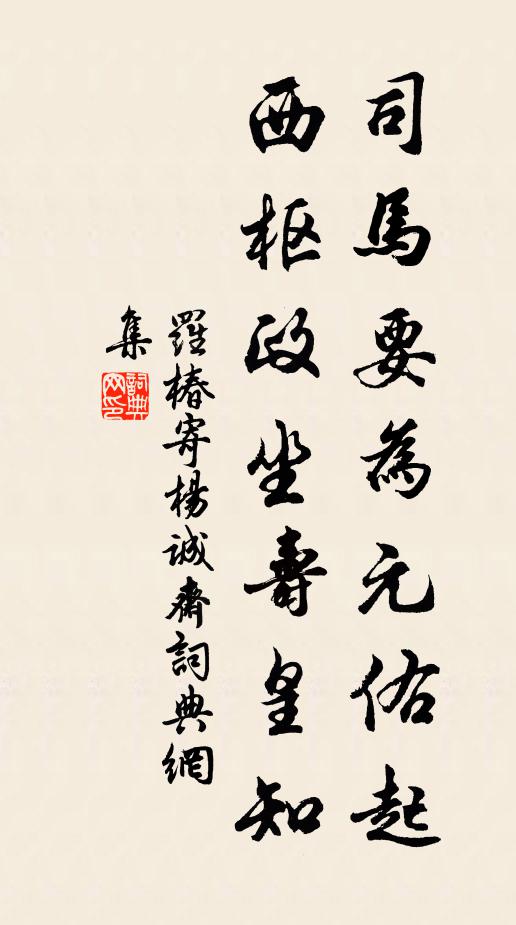 司馬要為元佑起
西枢政坐壽皇知
羅椿寄楊誠齋詞典網
集
詞典
网印